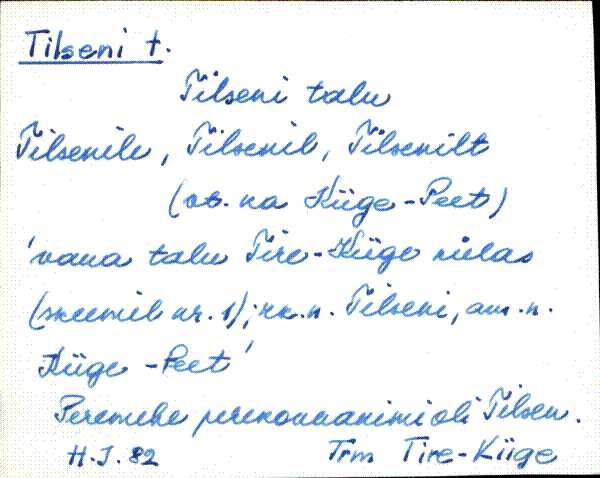 Tilseni t.
Tilseni talu
Tilsenile, Tilsenil, Tilsenilt
(vt. ka Kiige-Peet)
'vana talu Tire-Kiige külas
(skeemil nr. 1); rk. n. Tilseni, am. n.
Kiige-Peet'
Peremehe perekonnanimi oli Tilsen.
H.J. 82 Trm Tire-Kiige